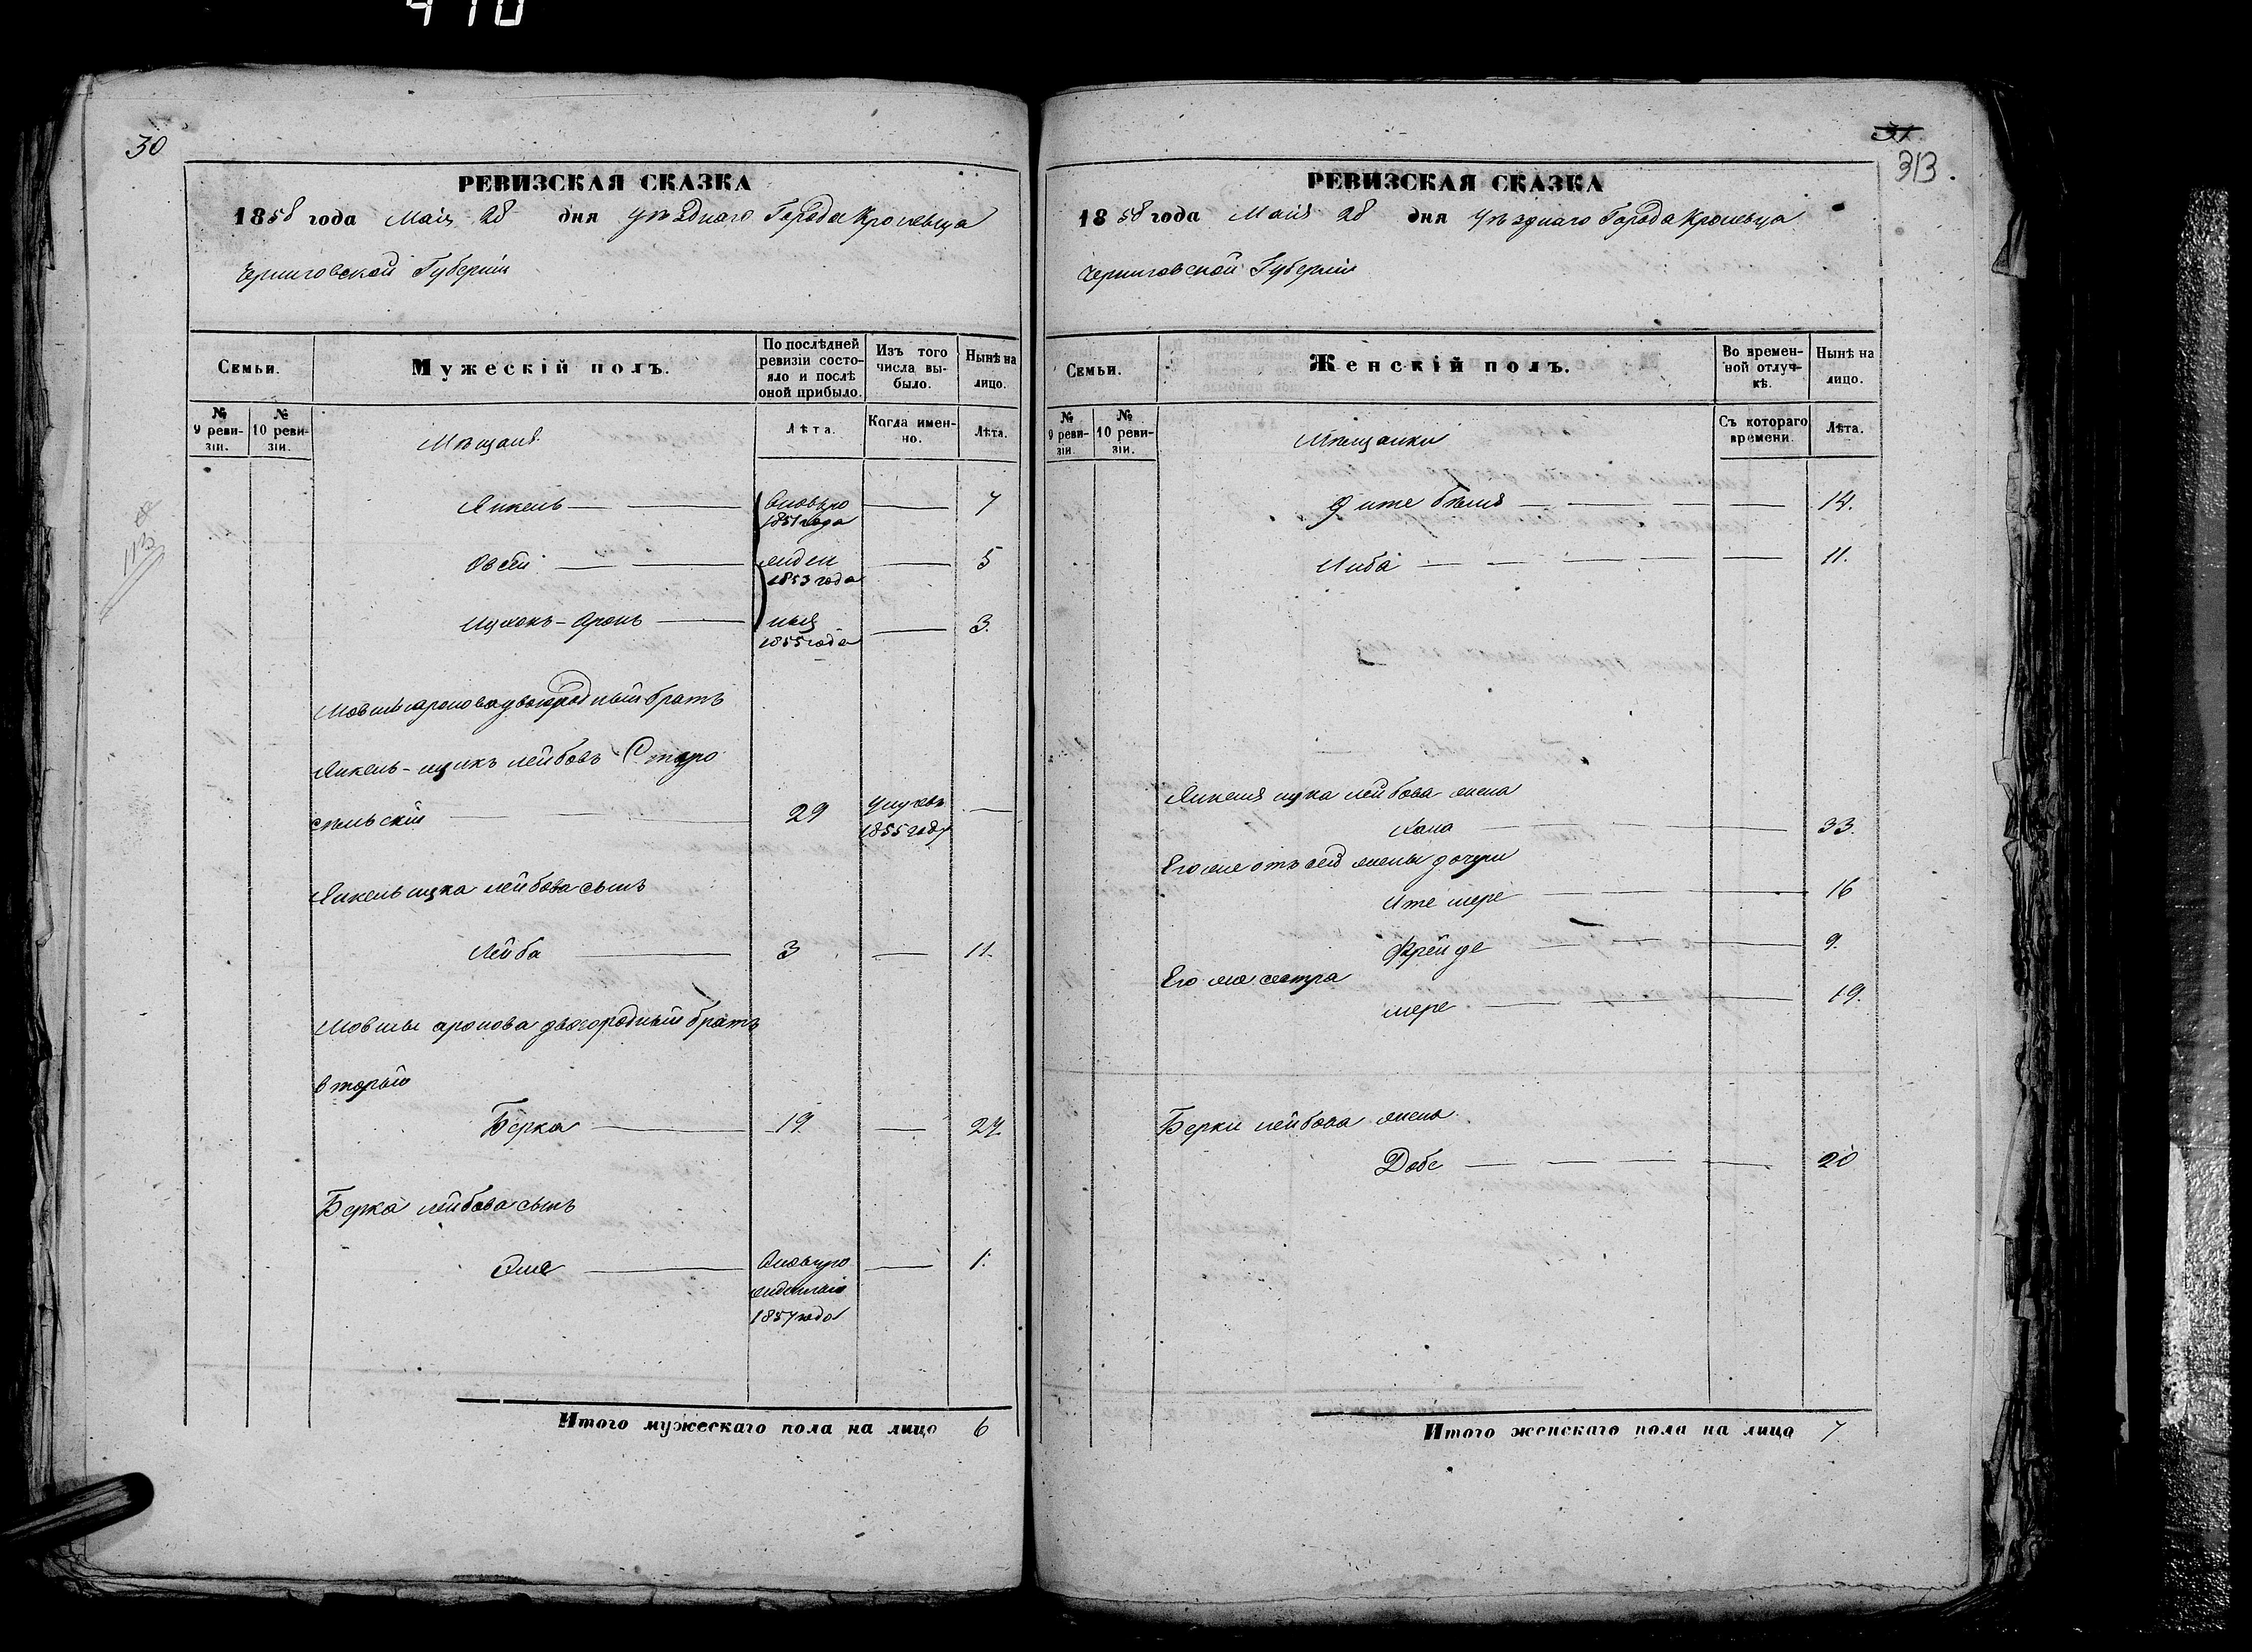 410
30
РЕВИЗСКАЯ СКАЗКА
1858 года Маія 28 дня Уѣзднаго Города Кролевца
Черниговской Губерніи
Семьи.
Мужескій полъ.
По послѣдней ревизіи состояло и послѣ оной прибыло.
Изъ того числа выбыло.
Нынѣ на лицо.
№ 9 ревизіи.
№ 10 ревизіи.
Мѣщане
Лѣта.
Когда именно.
Лѣта.
Янкель 7
1851 года
Овсей 5
1853 года
Ицхокъ-Аронъ 3.
1855 года
Мовши аронова двоюродный братъ
Янкель-ицикъ лейбовъ Старо
сельскій 29 —
1855 году
Янкель ицка лейбова сынъ
Лейба 3 — 11.
Мовши аронова двоюродный братъ
вторый
Берка 19 — 27.
Берка лейбова сынъ
1.
1857 года
Итого мужескаго пола на лицо 6
31
313.
РЕВИЗСКАЯ СКАЗКА
1858 года Маія 28 дня Уѣзднаго Города Кролевца
Черниговской Губерніи
Семьи.
Женскій полъ.
Во временной отлучкѣ.
Нынѣ на лицо.
№ 9 ревизіи.
№ 10 ревизіи.
Мѣщанки
Съ котораго времени.
Лѣта.
14.
Либа 11.
Янкеля ицка лейбова жена
Хана 33.
Его же отъ сей жены дочери
Ите мере 16
Фрейде 9.
Его же сестра
мере 19.
Берки лейбова жена
Добе 20
Итого женскаго пола на лицо 7